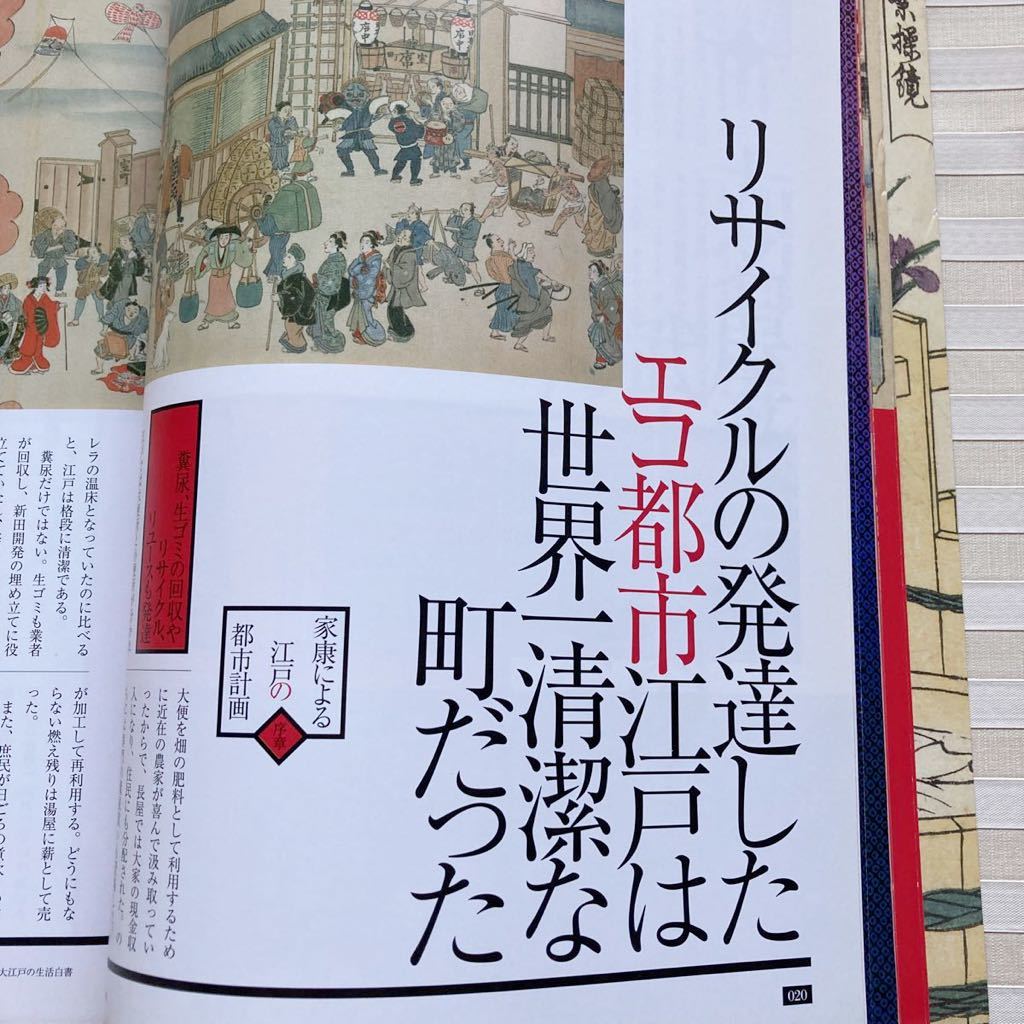 リサイクルの発達した
エコ都市江戸は
世界一清潔な
町だった
家康による
江戸の
都市計画
序章
糞尿、生ゴミの回収や
リサイクル、
リユースも発達
大便を畑の肥料として利用するため
に近在の農家が喜んで汲み取ってい
ったからで、長屋では大家の現金収
入になり、住民にも分配された。の
レラの温床となっていたのに比べる
と、江戸は格段に清潔である。
糞尿だけではない。生ゴミも業者
が回収し、新田開発の埋め立てに役
が加工して再利用する。どうにもな
らない燃え残りは湯屋に薪として売
った。
また、庶民が日ごろの煮炊
大江戸の生活白書
020
操鏡